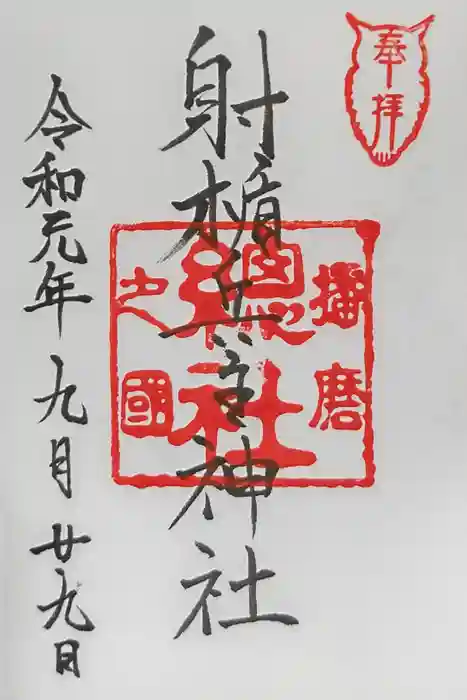 奉拝
播磨
總社
之國
射楯兵主神社
令和元年九月廿九日